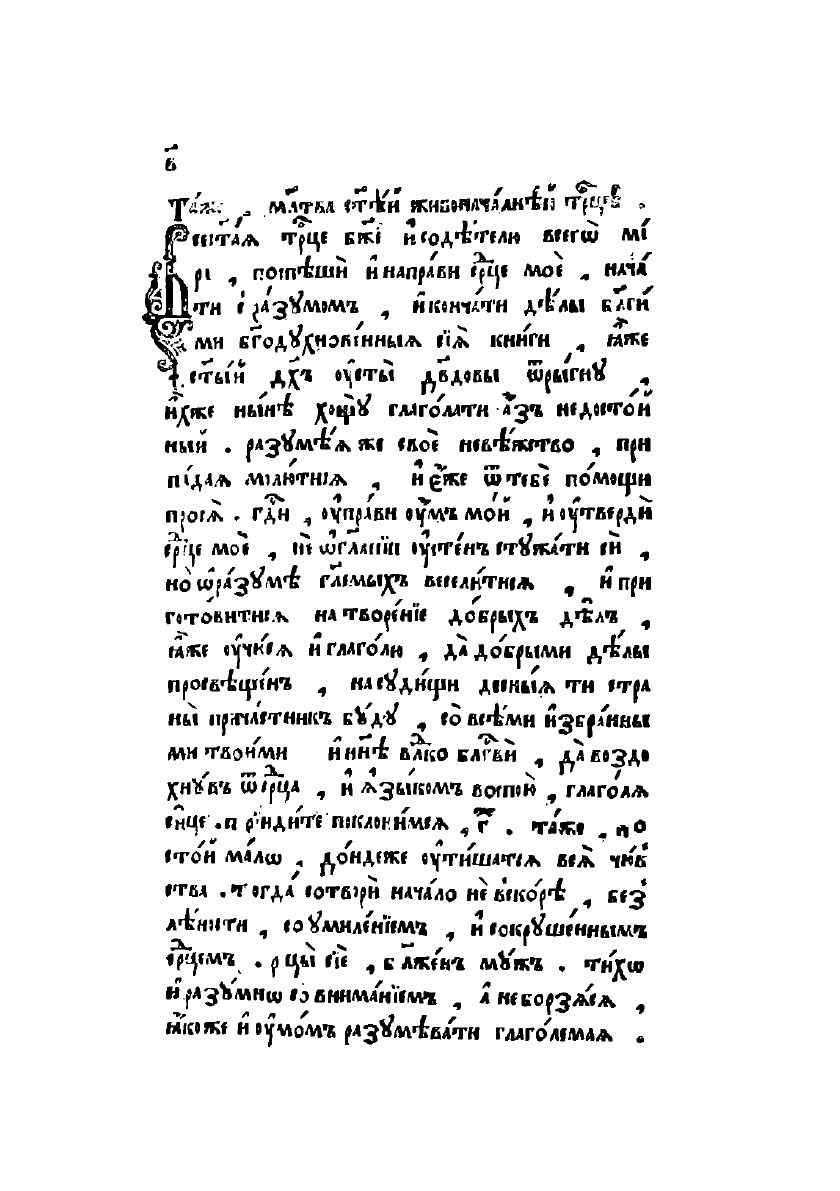 в҃
Та́же , мл҃тва ст҃ѣ́й живонача́лнѣй трⷪ҇цѣ .
Всест҃а́ѧ трⷪ҇це бж҃е и҆ содѣ́телю всегѡ̀ мі́
ра , поспѣшѝ и҆ напра́ви срⷣце моѐ , нача́
ти с ра́зꙋмомъ , и҆ конча́ти дѣ́лы бл҃ги́
ми бг҃одꙋхнове́нныѧ сїѧ̀ кни́ги , ꙗ҆̀же
ст҃ы́й дх҃ъ ᲂу҆сты̀ дв҃довы ѿры́гнꙋ ,
и҆́хже ны́нѣ хощꙋ̀ глаго́лати а҆́зъ недосто́й
ный . разꙋмѣ́ѧ же своѐ невѣ́жество , при
па́даѧ молю́тисѧ , и҆ є҆́же ѿ тебѐ по́мощи
просѧ̀ . гдⷭ҇и , ᲂу҆пра́ви ᲂу҆́мъ мо́й , и҆ ᲂу҆твердѝ
срⷣце моѐ , не ѡ҆ гл҃а́нїи ᲂу҆сте́нъ стꙋжа́ти сѝ ,
но ѡ҆ ра́зꙋмѣ гл҃емыхъ весели́тисѧ , и҆ при
гото́витисѧ на творе́нїе до́брыхъ дѣ́лъ ,
ꙗ҆̀же ᲂу҆чю́сѧ и҆ глаго́лю , да до́брыми дѣ́лы
просвѣще́нъ , на сꙋди́щи десны́ѧ ти стра
ны̀ прича́стникъ бꙋ́дꙋ , со всѣ́ми и҆збра́нны
ми твои́ми и҆ нн҃ѣ влⷣко бл҃гвѝ , да воздо
хнꙋ́въ ѿ срⷣца , и҆ ѧ҆зы́комъ воспою̀ , глаго́лѧ
си́це . прїиди́те поклони́мсѧ , г҃ . та́же , по
сто́й ма́лѡ , до́ндеже ᲂу҆тиша́тсѧ всѧ̀ чю́в
ства . тогда̀ сотворѝ нача́ло не вско́рѣ , без
лѣ́ности , со ᲂумиле́нїемъ , и҆ сокрꙋше́ннымъ
срⷣцемъ . рцы̀ сїѐ , бл҃же́нъ мꙋ́жъ . ти́хѡ
и҆ разꙋ́мнѡ со внима́нїемъ , а҆ не борзѧ́сѧ ,
ꙗ҆́коже и҆ ᲂу҆мо́мъ разꙋмѣва́ти глаго́лемаѧ .